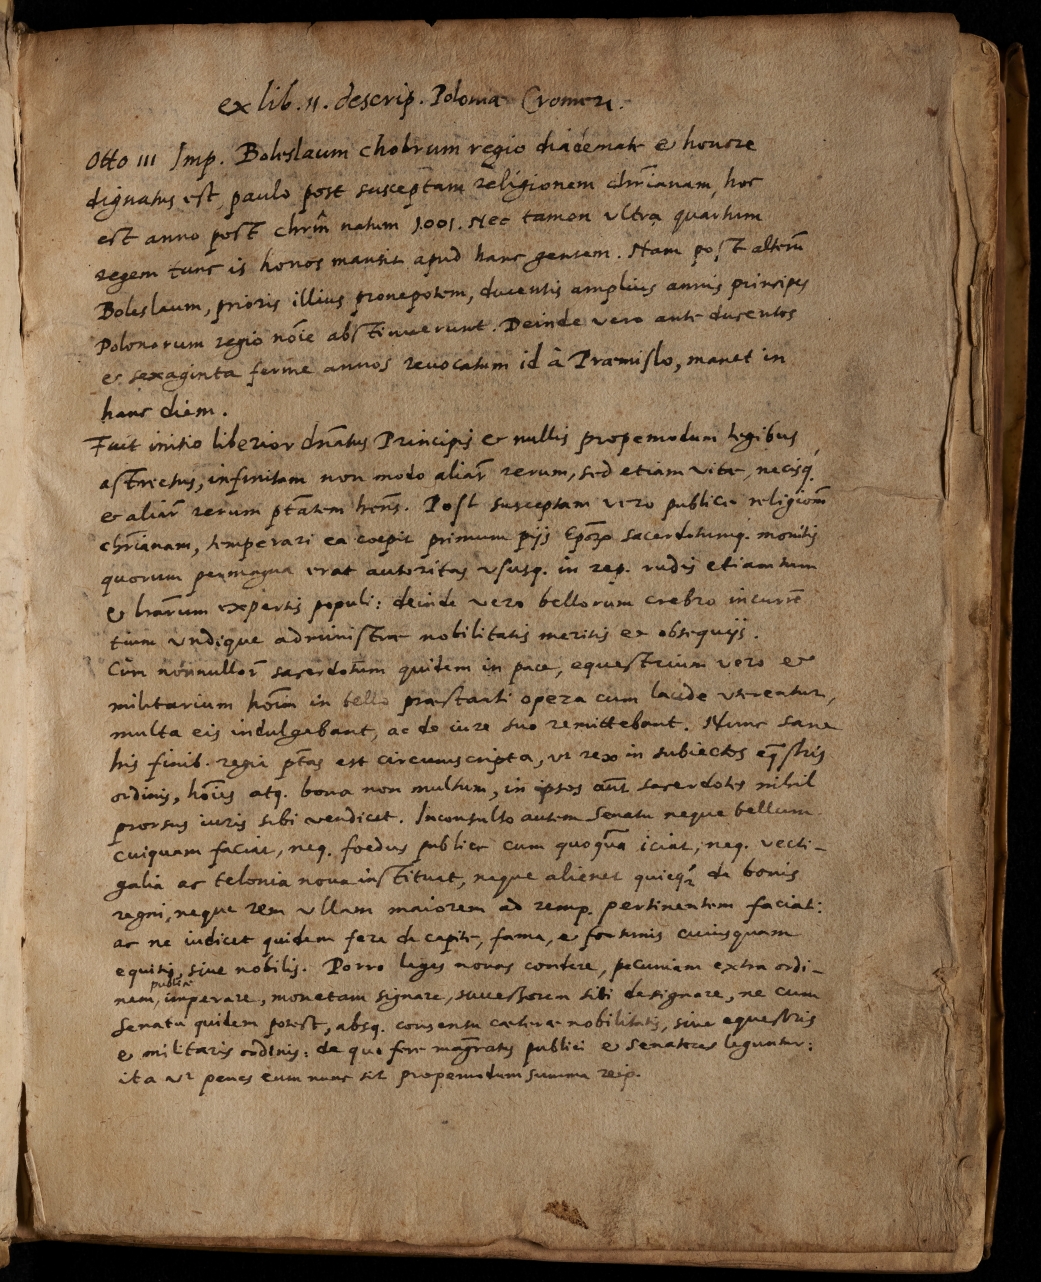 ex lib. II. descrip. Poloniae Cromeri.
Otto III Imp. Boleslaum chobrum regio diademate & honore
dignatus est, paulo post susceptam religionem chr̃ianam, hoc
est anno post chrm̃ natum 1001. Nec tamen vltra quartum
regem tunc is honos mansit apud hanc gentem. Nam post alterũ
Boleslaum, prioris illius pronepotem, ducentis amplius annis principes
Polonorum regio nõie abstinuerunt. Deinde vero ante ducentos
& sexaginta ferme annos reuocatum id à Praemislo, manet in
hanc diem.
Fuit initio liberior dñatus Principis & nullis propemodum legibus
astrictus, infinitam non modo aliar̃ rerum, sed etiam vitae, necisq.
& aliar̃ rerum ptãtem hñs. Post susceptam vero publice religionẽ
chr̃ianam, temperari ea coepit primum pijs Epõr sacerdotumq. monitis
quorum permagna erat autoritas vsusq. in rep. rudis etiamtum
& lr̃arum expertis populi: deinde vero bellorum crebro incurrẽ
tium vndique administrae nobilitatis meritis & obsequijs.
Cùm nonnullor̃ sacerdotum quidem in pace, equestrium vero &
militarium hoĩm in bello praestanti opera cum laude vterentur,
multa eis indulgebant, ac de iure suo remittebant. Nunc sane
his finib. regia ptãs est circumscripta, vt rex in subiectos eq̃stris
ordinis, hõies atq. bona non multum, in ipsos aũt sacerdotes nihil
prorsus iuris sibi vendicet. Inconsulto autem Senatu neque bellum
cuiquam faciat, neq. foedus publice cum quoquã iciat, neq. vecti-
galia ac telonia noua instituat, neque alienet quicq̃ de bonis
regni, neque rem vllam maiorem ad remp. pertinentem faciat:
ac ne iudicet quidem fere de capite, fama, & fortunis cuiusquam
equitis, siue nobilis. Porro leges nouas condere, pecuniam extra ordi-
publice
nem, imperare, monetam signare, successorem sibi designare, ne cum
Senatu quidem potest, absq. consensu caeterae nobilitatis, siue equestris
& militaris ordinis: de quo fere magr̃atus publici & Senatores leguntur:
ita vt penes eum nunc sit propemodum summa reip.